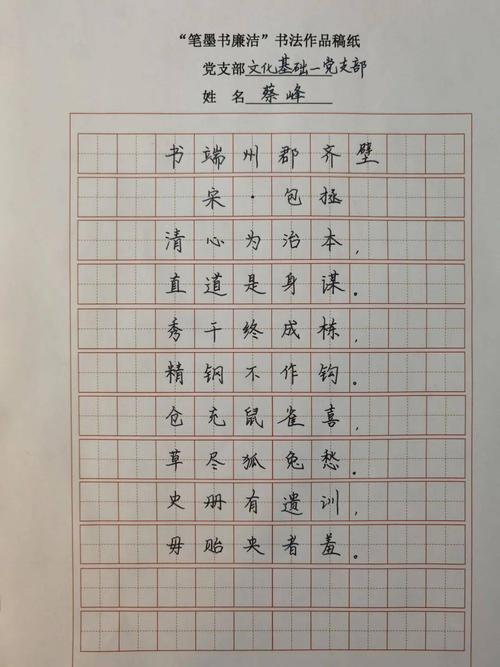 “笔墨书廉洁”书法作品稿纸
党支部 文化基础一党支部
姓 名 蔡峰
书端州郡齐壁
宋·包拯
清心为治本,
直道是身谋。
秀干终成栋,
精钢不作钩。
仓充鼠雀喜,
草尽狐兔愁。
史册有遗训,
毋贻央者羞。